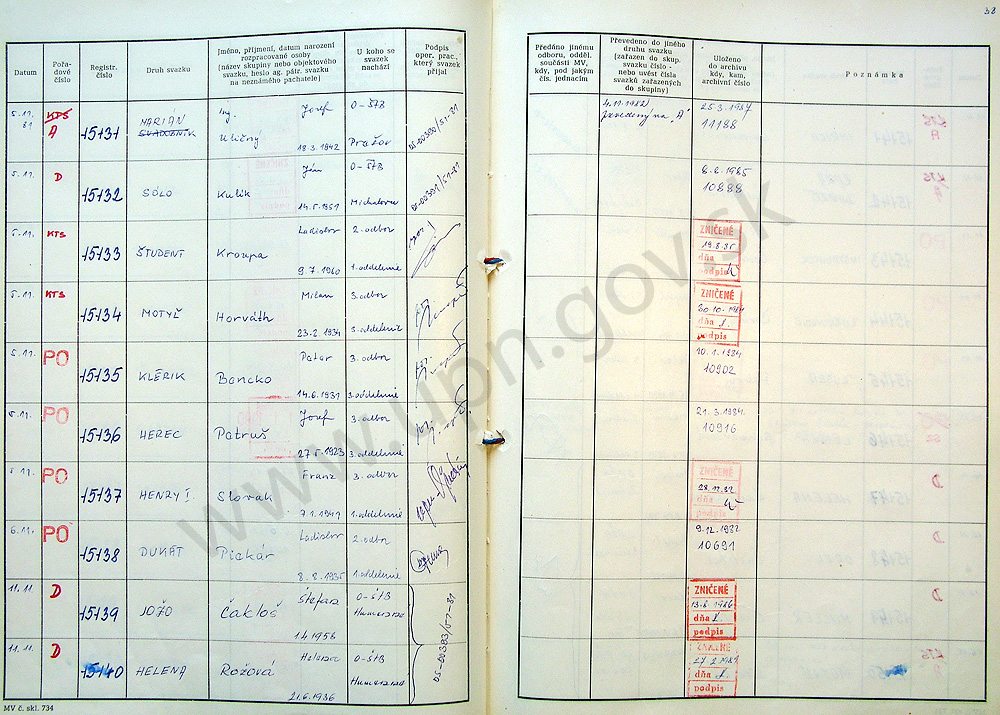 38
Datum
Pořadové číslo
Registr. číslo
Druh svazku
Jméno, příjmení, datum narození rozpracované osoby (název skupiny nebo objektového svazku, heslo ag. pátr. svazku na neznámého pachatele)
U koho se svazek nachází
Podpis oper. prac., který svazek přijal
Předáno jinému odboru, odděl. součásti MV, kdy, pod jakým čís. jednacím
Převedeno do jiného druhu svazku (zařazen do skup. svazku číslo - nebo uvést čísla svazků zařazených do skupiny)
Uloženo do archivu kdy, kam, archivní číslo
Poznámka
5.11. 81 KTS A 15131 MARIÁN Ing. Jozef Uličný 18.3.1942 O-ŠTB 05-00383/51-81 4.11.1982 zavedený na "A" 25.3.1987 11188
5.11. D 15132 SÓLO Ján Kulik O-ŠTB Michalovce 6.2.1985 10888
5.11. KTS 15133 ŠTUDENT Ladislav Kroupa 9.7.1960 2. odbor 1. oddelenie ZNIČENÉ dňa podpis
5.11. KTS 15134 MOTYĽ Milan Horváth 23.2.1934 3. odbor 3. oddelenie ZNIČENÉ 30.10.1984 dňa podpis
5.11. PO 15135 KLÉRIK Peter Bencko 14.6.1931 3. odbor 3. oddelenie 10.1.1984 10902
5.11. PO 15136 HEREC Jozef Petruš 27.5.1923 3. odbor 3. oddelenie 21.3.1984 10916
5.11. PO 15137 HENRY I. Franz Slovak 7.1.1941 3. odbor 1. oddelenie ZNIČENÉ dňa podpis
6.11. PO 15138 DUKÁT Ladislav 8.8.1935 2. odbor 1. oddelenie 9.12.1982 10691
11.11. D 15139 JOŽO Štefan Čakloš 1.4.1956 O-ŠTB Humenné 05-00383/51-81 ZNIČENÉ 13.6.1986 dňa podpis
11.11. D 15140 HELENA Helena Rožová 21.6.1936 O-ŠTB Humenné ZNIČENÉ dňa podpis
MV č. skl. 734
www.upn.gov.sk